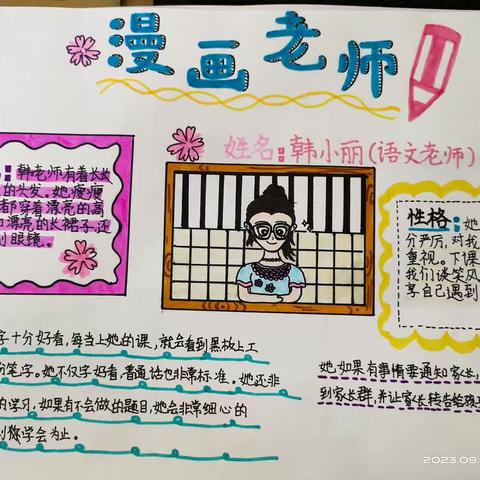 漫画老师
姓名：韩小丽（语文老师）
：韩老师有着长长
的头发。她瘦瘦
都穿着漂亮的高
漂亮的长裙子，还
眼镜。
性格：她
分严厉，对我
重视。下课
我们谈笑风
享自己遇到
字十分好看，每当上她的课，就会看到黑板上工
粉笔字。她不仅字好看，普通话也非常标准。她还非
的学习，如果有不会做的题目，她会非常细心的
到你学会为止。
她，如果有事情要通知家长，
到家长群，并让家长转告给孩
2023.09.